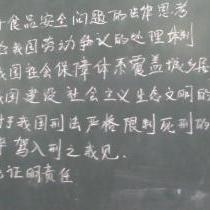 食品安全问题的法律思考
我国劳动争议的处理体制
我国社会保障体系覆盖城乡居
我国建设社会主义生态文明的
对于我国刑法严格限制死刑的
驾入刑之我见.
证明责任